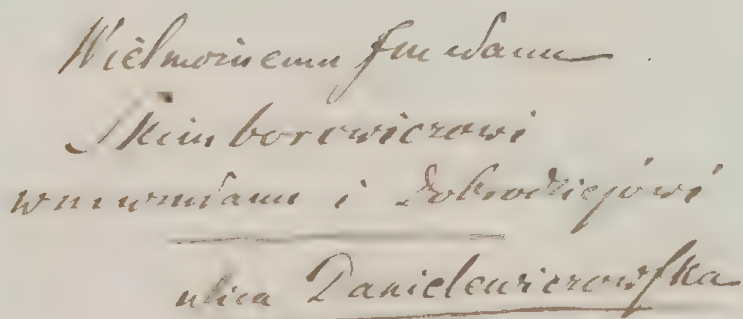 Wielmożnemu Jmć Panu
Skimborowiczowi
wmć panu i Dobrodziejowi
ulica Danielewiczowska